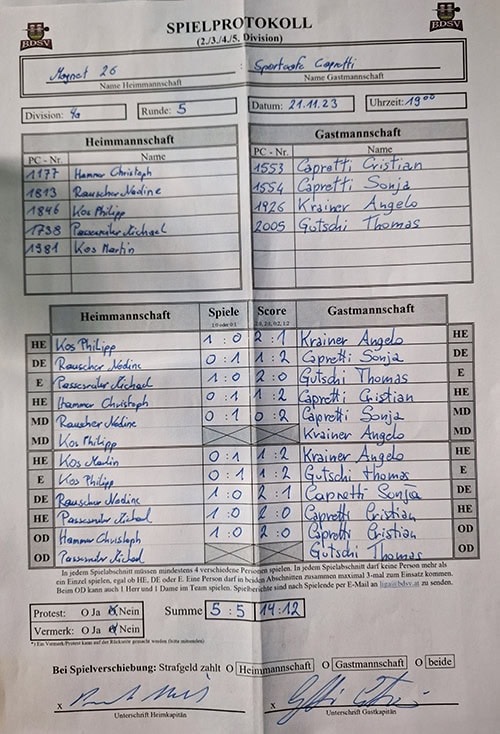 BDSV
SPIELPROTOKOLL
BDSV
(2./3./4./5. Division)
Magnet 26 : Sportcafe Capretti
Name Heimmannschaft Name Gastmannschaft
Division: 4a Runde: 5 Datum: 21.11.23 Uhrzeit: 19 00
Heimmannschaft Gastmannschaft
PC - Nr. Name PC - Nr. Name
1177 Hammer Christoph 1553 Capretti Cristian
1813 Rauscher Nadine 1554 Capretti Sonja
1846 Kos Philipp 1926 Krainer Angelo
1738 Michael 2005 Gutschi Thomas
1981 Kos Martin
Heimmannschaft Spiele Score Gastmannschaft
1:0 oder 0:1 2:0, 2:1, 0:2, 1:2
HE Kos Philipp 1 : 0 2 : 1 Krainer Angelo HE
DE Rauscher Nadine 0 : 1 1 : 2 Capretti Sonja DE
E Michael 1 : 0 2 : 0 Gutschi Thomas E
HE Hammer Christoph 0 : 1 1 : 2 Capretti Cristian HE
MD Rauscher Nadine 0 : 1 0 : 2 Capretti Sonja MD
MD Kos Philipp Krainer Angelo MD
HE Kos Martin 0 : 1 1 : 2 Krainer Angelo HE
E Kos Philipp 0 : 1 1 : 2 Gutschi Thomas E
DE Rauscher Nadine 1 : 0 2 : 1 Capretti Sonja DE
HE Michael 1 : 0 2 : 0 Capretti Cristian HE
OD Hammer Christoph 1 : 0 2 : 0 Capretti Cristian OD
OD Michael Gutschi Thomas OD
In jedem Spielabschnitt müssen mindestens 4 verschiedene Personen spielen. In jedem Spielabschnitt darf keine Person mehr als
ein Einzel spielen, egal ob HE, DE oder E. Eine Person darf in beiden Abschnitten zusammen maximal 3-mal zum Einsatz kommen.
Beim OD kann auch 1 Herr und 1 Dame im Team spielen. Spielberichte sind nach Spielende per E-Mail an liga@bdsv.at zu senden.
Protest: O Ja O Nein Summe 5 : 5 14 : 12
Vermerk: O Ja O Nein
*) Ein Vermerk/Protest kann auf der Rückseite gemacht werden (bitte mitsenden)
Bei Spielverschiebung: Strafgeld zahlt O Heimmannschaft O Gastmannschaft O beide
x x
Unterschrift Heimkapitän Unterschrift Gastkapitän